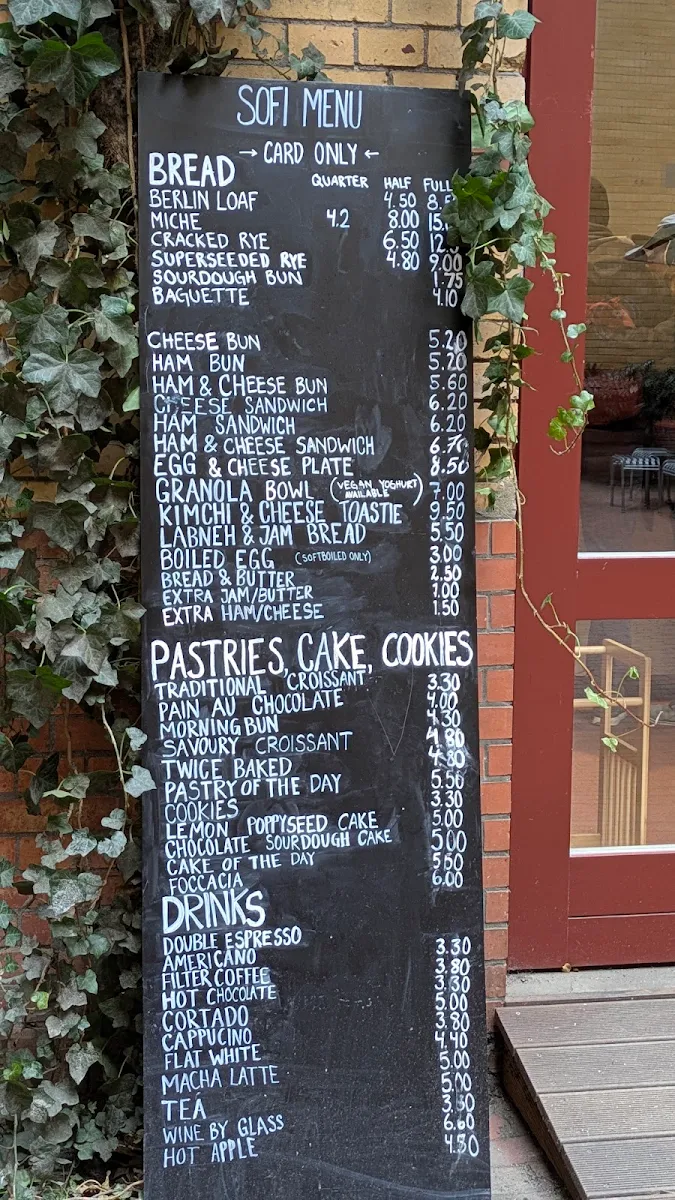 SOFI MENU
→ CARD ONLY ←
BREAD QUARTER HALF FULL
BERLIN LOAF 4.50
MICHE 4.2 8.00
CRACKED RYE 6.50
SUPERSEEDED RYE 4.80 9.00
SOURDOUGH BUN 1.75
BAGUETTE 4.10
CHEESE BUN 5.20
HAM BUN 5.20
HAM & CHEESE BUN 5.60
CHEESE SANDWICH 6.20
HAM SANDWICH 6.20
HAM & CHEESE SANDWICH 6.70
EGG & CHEESE PLATE 8.50
GRANOLA BOWL (VEGAN YOGHURT AVAILABLE) 7.00
KIMCHI & CHEESE TOASTIE 9.50
LABNEH & JAM BREAD 5.50
BOILED EGG (SOFTBOILED ONLY) 3.00
BREAD & BUTTER 2.50
EXTRA JAM/BUTTER 1.00
EXTRA HAM/CHEESE 1.50
PASTRIES, CAKE, COOKIES
TRADITIONAL CROISSANT 3.30
PAIN AU CHOCOLATE 4.00
MORNING BUN 4.30
SAVOURY CROISSANT 4.80
TWICE BAKED 4.80
PASTRY OF THE DAY 5.50
COOKIES 3.30
LEMON POPPYSEED CAKE 5.00
CHOCOLATE SOURDOUGH CAKE 5.00
CAKE OF THE DAY 5.50
FOCCACIA 6.00
DRINKS
DOUBLE ESPRESSO 3.30
AMERICANO 3.80
FILTER COFFEE 3.30
HOT CHOCOLATE 5.00
CORTADO 3.80
CAPPUCINO 4.40
FLAT WHITE 5.00
MACHA LATTE 5.00
TEA
WINE BY GLASS 6.60
HOT APPLE 4.50